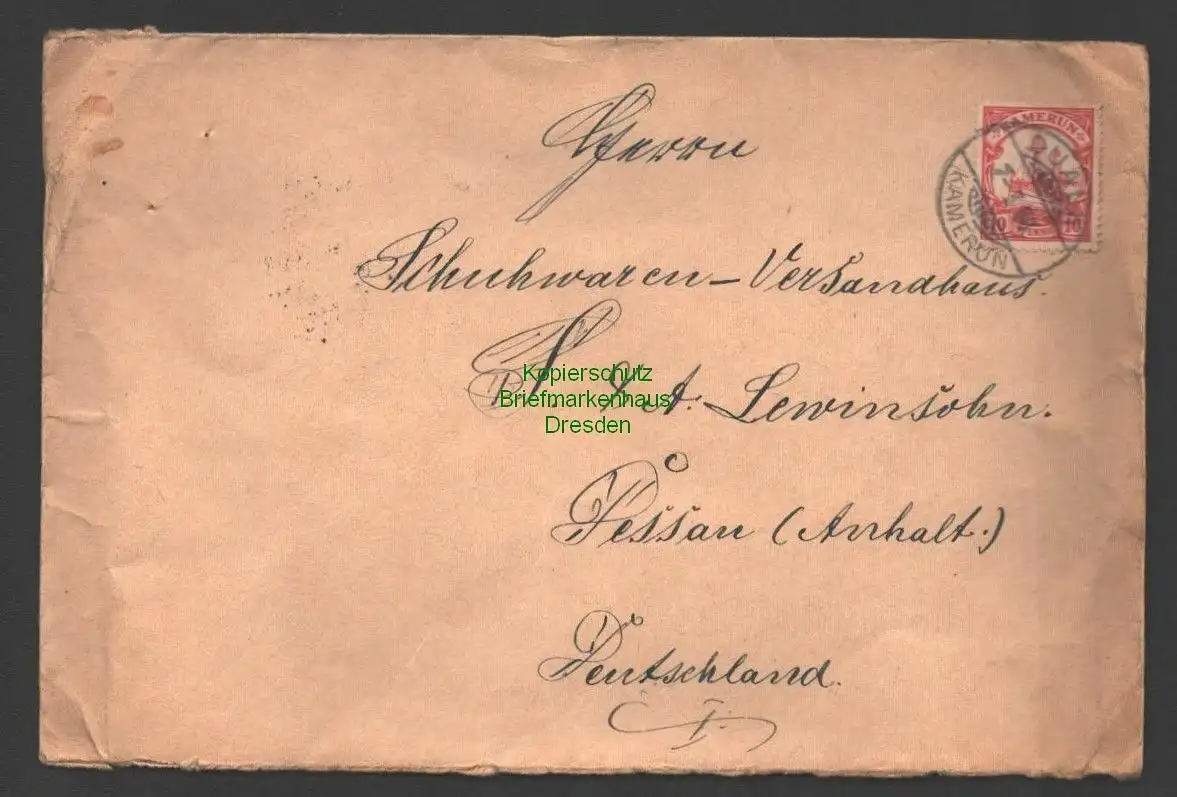 Herrn
KAMERUN
10 10
KAMERUN
Schuhwaren-Versandhaus.
S. & A. Lewinsohn.
Kopierschutz
Briefmarkenhaus
Dresden
Dessau (Anhalt.)
Deutschland.